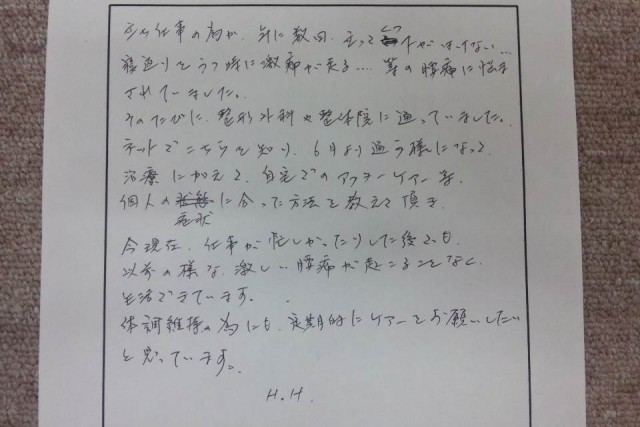 立ち仕事の為か、年に数回、立ってくつ下がはけない…
寝返りをうつ時に激痛が走る…。等の腰痛に悩ま
されていました。
そのたびに、整形外科や整体院に通っていました。
ネットでこちらを知り、6月より通う様になって
治療に加えて、自宅でのアフターケアー等、
個人の症状に合った方法を教えて頂き
今現在、仕事が忙しかったりした後でも、
以前の様な、激しい腰痛が起こることなく
生活できています。
体調維持の為にも、定期的にケアーをお願いしたい
と思っています。
H.H.